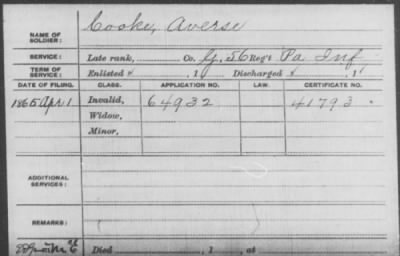 NAME OF SOLDIER: Cooke, Averse
SERVICE: Late rank, Co. G, 56 Reg't Pa Inf
TERM OF SERVICE: Enlisted , 1 Discharged , 1
DATE OF FILING. CLASS. APPLICATION NO. LAW. CERTIFICATE NO.
1865 Apr 1 Invalid, 64932 41793
Widow,
Minor,
ADDITIONAL SERVICES:
REMARKS:
Died , 1 , at